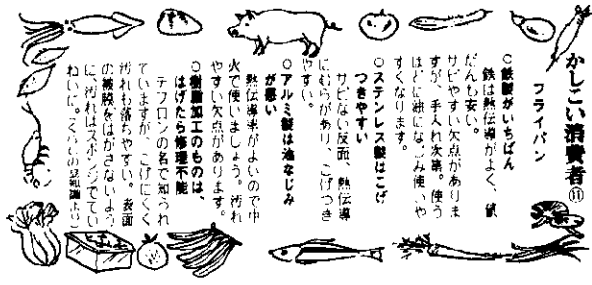 かしこい消費者⑪
フライパン
○鉄製がいちばん
鉄は熱伝導がよく、値
だんも安い。
サビやすい欠点がありま
すが、手入れ次第。使う
ほどに油になじみ使いや
すくなります。
○ステンレス製はこげ
つきやすい
サビない反面、熱伝導
にむらがあり、こげつき
やすい。
○アルミ製は油なじみ
が悪い
熱伝導率がよいので中
火で使いましょう。汚れ
やすい欠点があります。
○樹脂加工のものは、
はげたら修理不能
テフロンの名で知られ
ていますが、こげにくく
汚れも落ちやすい。表面
の被膜をはがさないよう
に、汚れはスポンジでてい
ねいに。くらしの豆知識より